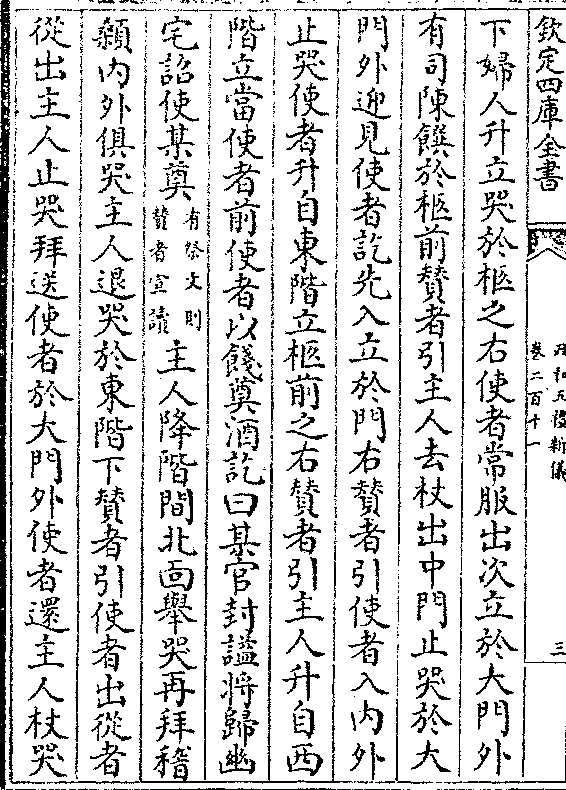 欽定四庫全書
政和五禮新儀
卷二百十一
三
下婦人升立哭於柩之右使者常服出次立於大門外
有司陳饌於柩前贊者引主人去杖出中門止哭於大
門外迎見使者訖先入立於門右贊者引使者入內外
止哭使者升自東階立柩前之右贊者引主人升自西
階立當使者前使者以饌奠酒訖曰某官封諡將歸幽
宅詔使某奠有祭文則贊者宣讀主人降階間北面舉哭再拜稽
顙內外俱哭主人退哭於東階下贊者引使者出從者
從出主人止哭拜送使者於大門外使者還主人杖哭